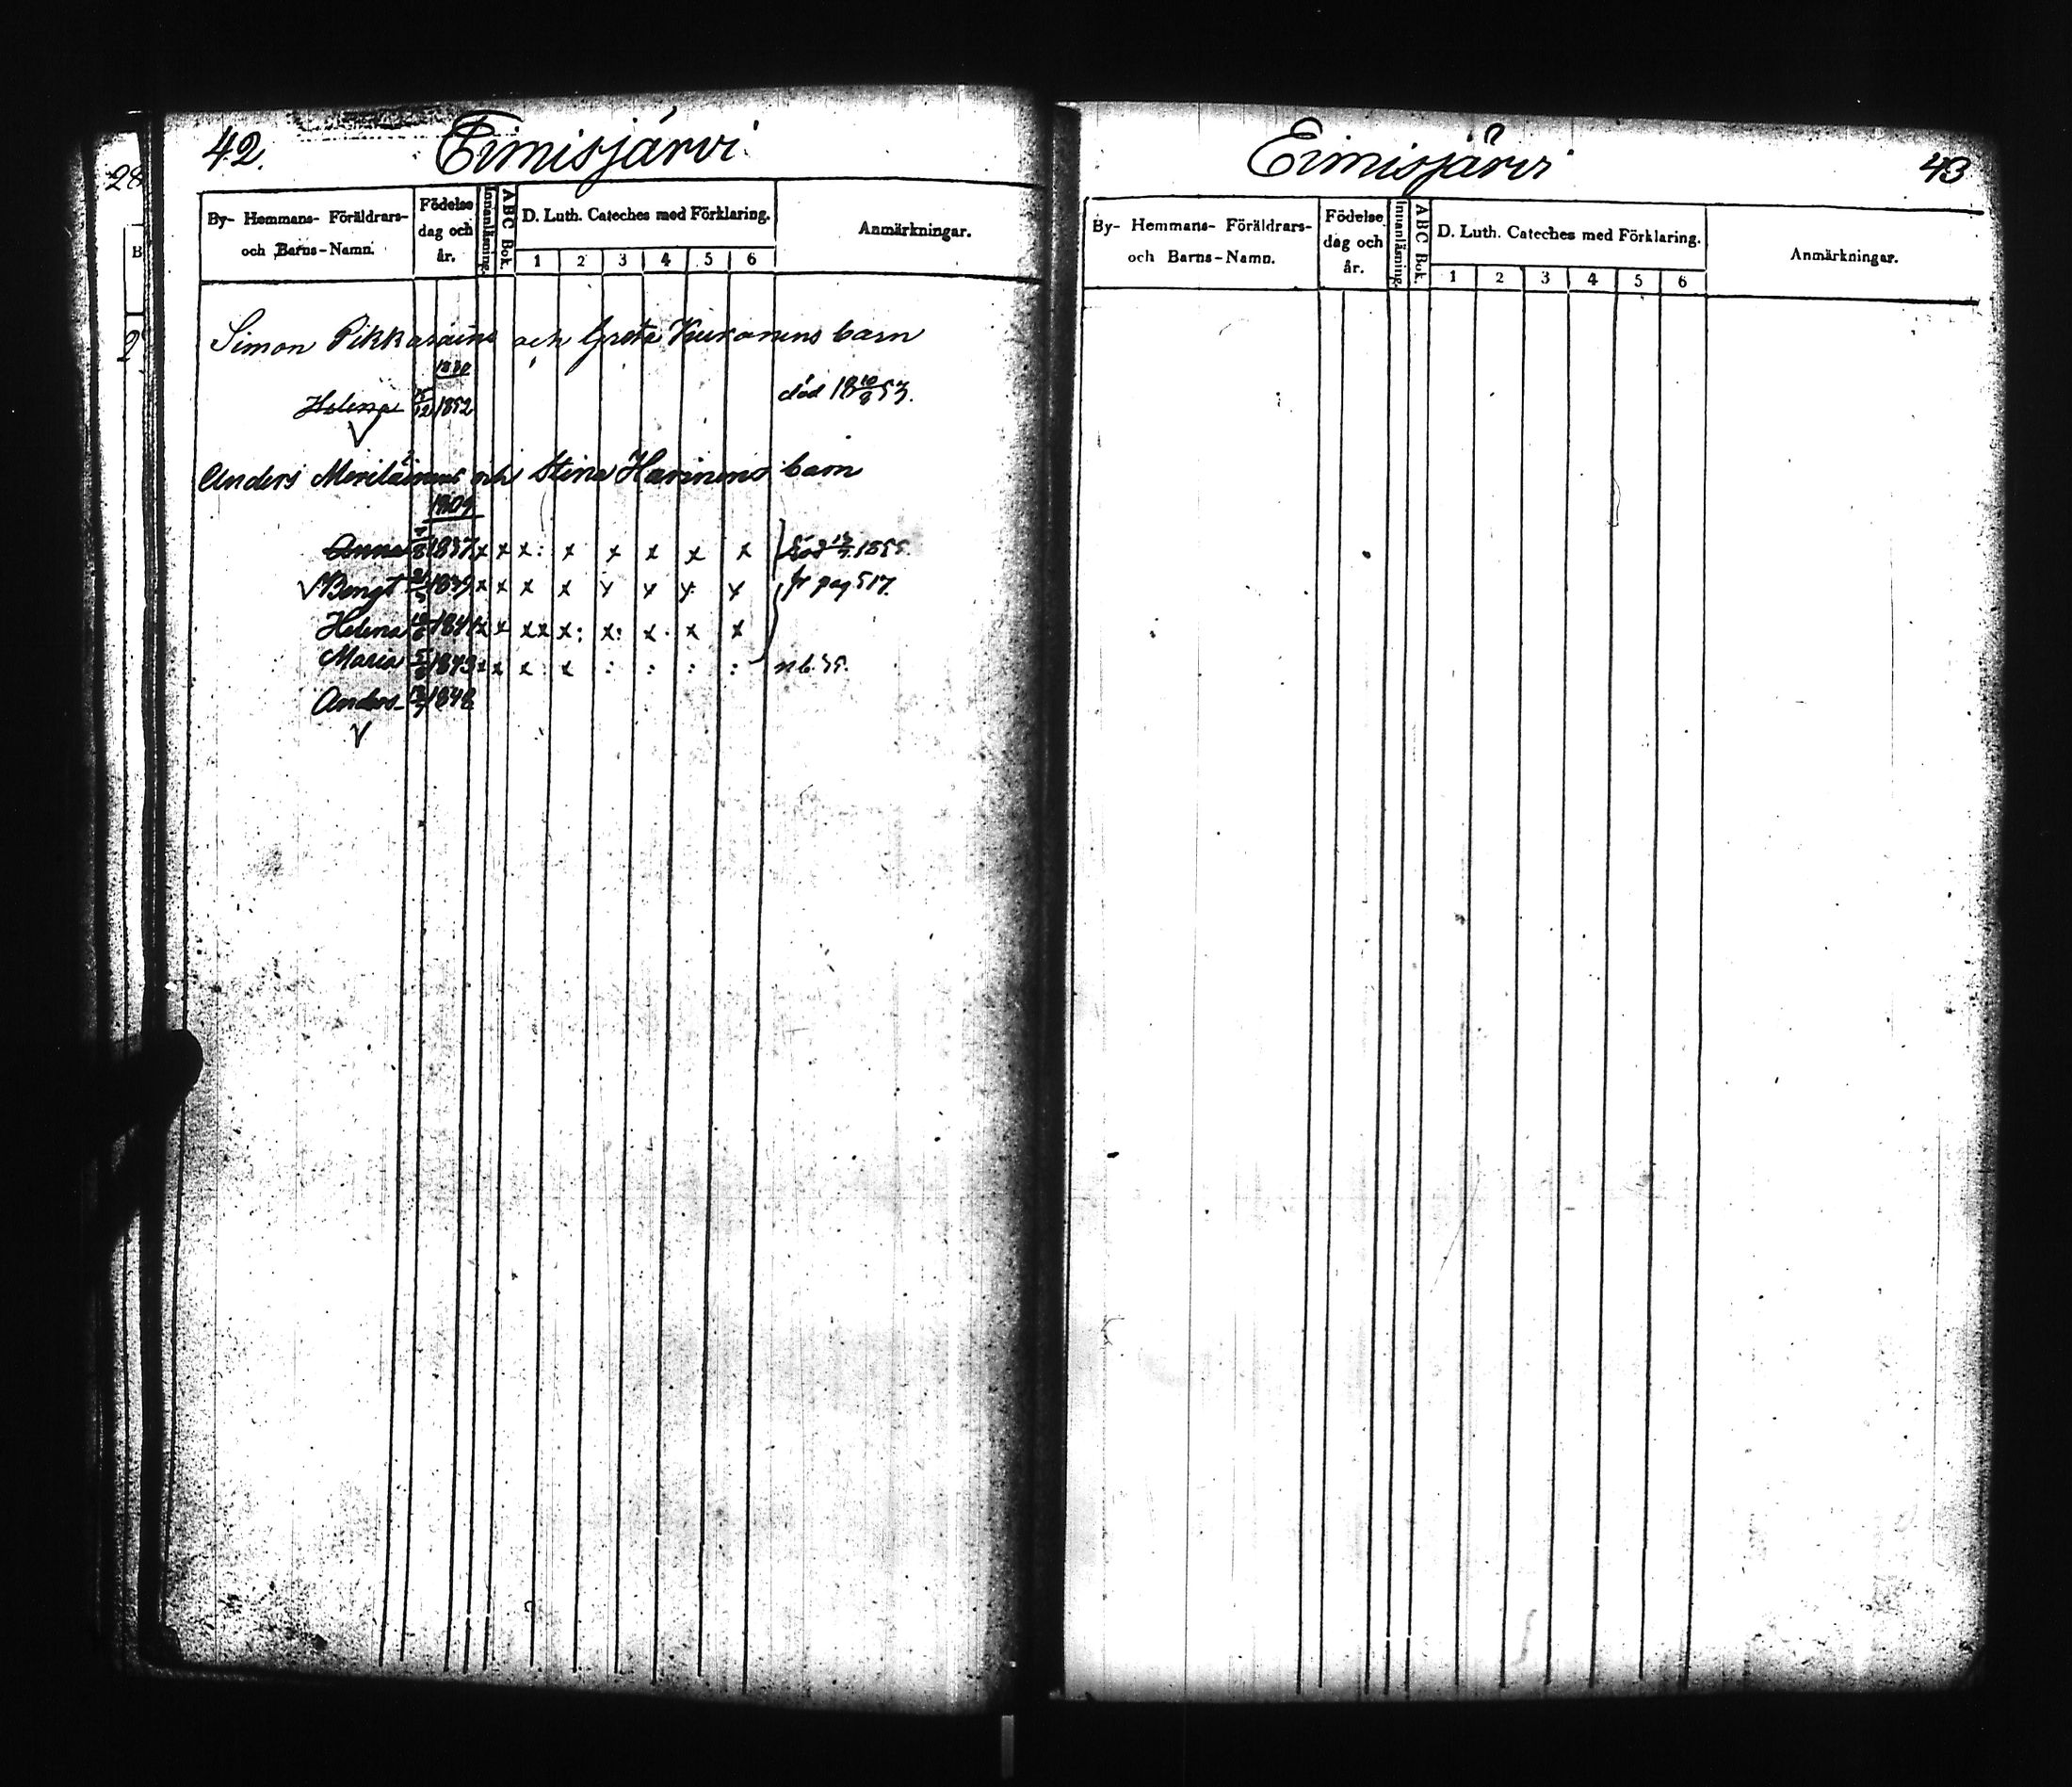 42. Eimisjärvi
By- Hemmans- Föräldrars-
och Barns-Namn.
Födelse
dag och
år.
Innanläsning.
ABC Bok.
D. Luth. Cateches med Förklaring.
1 2 3 4 5 6
Anmärkningar.
Simon Pikkarains och Greta barn
Helena 12 1852 död 18 10/8 53.
Anders Meriläinens och Stina Harinens barn
1809
Anna 1837 x x x: x x x x x död 1855
Bengt 1839 x x x x x x x x fr pag 517.
Helena 1841 x x xx x: x: x. x x
Maria 5/8 1843 x x x x : : : :
Anders 1848
Eimisjärvi 43
By- Hemmans- Föräldrars-
och Barns-Namn.
Födelse
dag och
år.
Innanläsning.
ABC Bok.
D. Luth. Cateches med Förklaring.
1 2 3 4 5 6
Anmärkningar.
28
B
2